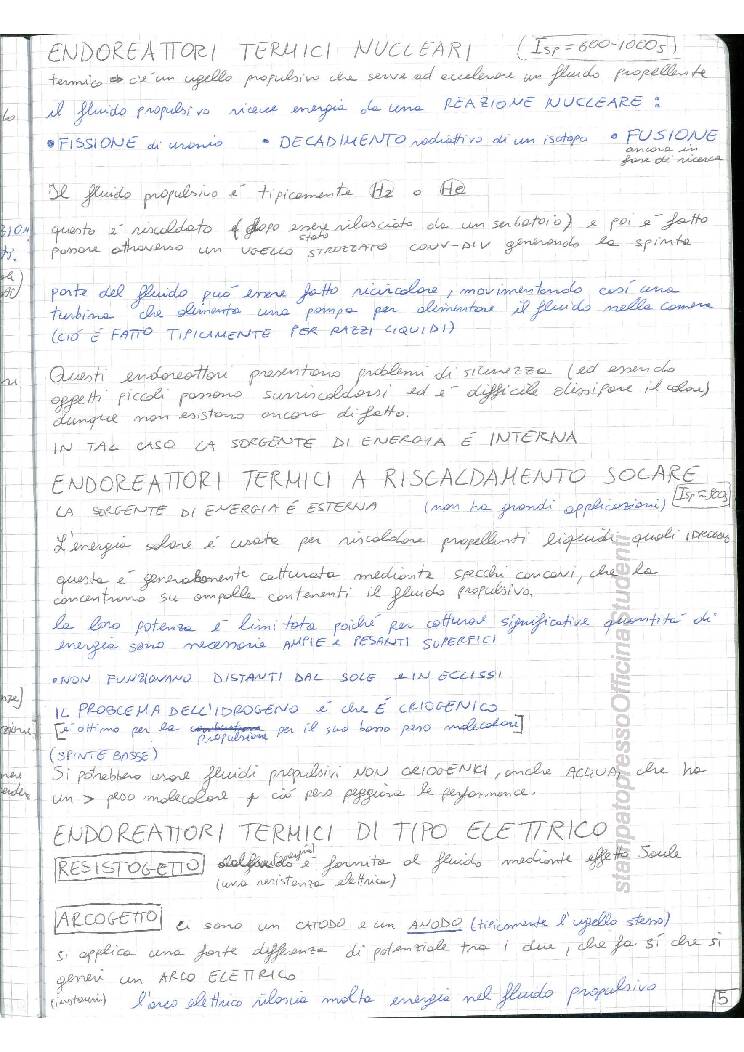 ENDOREATTORI TERMICI NUCLEARI (Isp = 600-1000s)
termico → c'è un ugello propulsivo che serve ad accelerare un fluido propellente
il fluido propulsivo riceve energia da una REAZIONE NUCLEARE:
• FISSIONE di uranio • DECADIMENTO radioattivo di un isotopo • FUSIONE
ancora in
fase di ricerca
Il fluido propulsivo è tipicamente H2 o He
questo è riscaldato (dopo essere stato rilasciato da un serbatoio) e poi è fatto
passare attraverso un UGELLO STROZZATO CONV-DIV generando la spinta
parte del fluido può essere fatto ricircolare, movimentando così una
turbina che alimenta una pompa per alimentare il fluido nella camera
(CIÒ È FATTO TIPICAMENTE PER RAZZI LIQUIDI)
Questi endoreattori presentano problemi di sicurezza (ed essendo
oggetti piccoli possono surriscaldarsi ed è difficile dissipare il calore)
dunque non esistono ancora di fatto.
IN TAL CASO LA SORGENTE DI ENERGIA È INTERNA
ENDOREATTORI TERMICI A RISCALDAMENTO SOLARE
LA SORGENTE DI ENERGIA È ESTERNA (non ha grandi applicazioni) Isp = 900s
L'energia solare è usata per riscaldare propellenti liquidi, quali IDROGENO
questa è generalmente catturata mediante specchi concavi, che la
concentrano su ampolle contenenti il fluido propulsivo.
la loro potenza è limitata poiché per catturare significative quantità di
energia sono necessarie AMPIE e PESANTI SUPERFICI
• NON FUNZIONANO DISTANTI DAL SOLE e IN ECLISSI
IL PROBLEMA DELL'IDROGENO è che È CRIOGENICO
[è ottimo per la propulsione per il suo basso peso molecolare]
(SPINTE BASSE)
Si potrebbero usare fluidi propulsivi NON CRIOGENICI, anche ACQUA, che ha
un > peso molecolare, ciò però peggiora le performance.
ENDOREATTORI TERMICI DI TIPO ELETTRICO
RESISTOGETTO (energia) è fornita al fluido mediante effetto Joule
(una resistenza elettrica)
ARCOGETTO ci sono un CATODO e un ANODO (tipicamente l'ugello stesso)
si applica una forte differenza di potenziale tra i due, che fa sì che si
generi un ARCO ELETTRICO
(instauri) l'arco elettrico rilascia molta energia nel fluido propulsivo
5
stampatopressoOfficinaStudenti